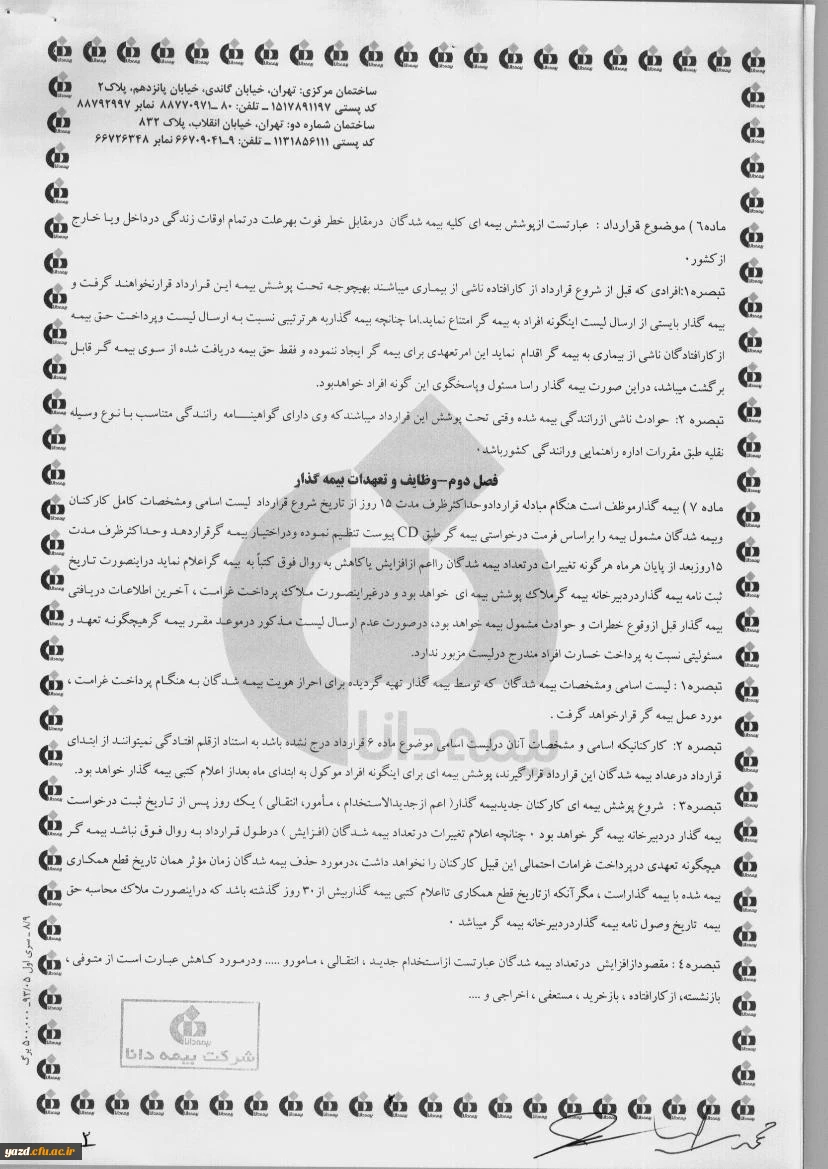 ساختمان مرکزی: تهران، خیابان گاندی، خیابان پانزدهم، پلاک۲
کد پستی ۱۵۱۷۸۹۱۱۹۷ ــ تلفن: ۸۰ ــ۸۸۷۷۰۹۷۱ نمابر ۸۸۷۹۲۹۹۷
ساختمان شماره دو: تهران، خیابان انقلاب، پلاک ۸۳۲
کد پستی ۱۱۳۱۸۵۶۱۱۱ ــ تلفن: ۹ــ۶۶۷۰۹۰۴۱ نمابر ۶۶۷۲۶۳۴۸
ماده٦ ) موضوع قرارداد : عبارتست ازپوشش بیمه ای کلیه بیمه شدگان درمقابل خطر فوت بهرعلت درتمام اوقات زندگی درداخل ویا خارج
ازکشور۰
تبصره ۱:افرادی که قبل از شروع قرارداد از کارافتاده ناشی از بیماری میباشند بهیچوجه تحت پوشش بیمه این قرارداد قرارنخواهند گرفت و
بیمه گذار بایستی از ارسال لیست اینگونه افراد به بیمه گر امتناع نماید.اما چنانچه بیمه گذاربه هرترتیبی نسبت به ارسال لیست وپرداخت حق بیمه
ازکارافتادگان ناشی از بیماری به بیمه گر اقدام نماید این امرتعهدی برای بیمه گر ایجاد ننموده و فقط حق بیمه دریافت شده از سوی بیمه گر قابل
برگشت میباشد، دراین صورت بیمه گذار راسا مسئول وپاسخگوی این گونه افراد خواهدبود.
تبصره ۲: حوادث ناشی ازرانندگی بیمه شده وقتی تحت پوشش این قرارداد میباشندکه وی دارای گواهینـــامه رانندگی متناسب با نوع وسیله
نقلیه طبق مقررات اداره راهنمایی ورانندگی کشورباشد۰
فصل دوم–وظایف و تعهدات بیمه گذار
ماده ۷ ) بیمه گذارموظف است هنگام مبادله قراردادوحداکثرظرف مدت ۱۵ روز از تاریخ شروع قرارداد لیست اسامی ومشخصات کامل کارکنان
وبیمه شدگان مشمول بیمه را براساس فرمت درخواستی بیمه گر طبق CD پیوست تنظیم نموده ودراختیار بیمه گرقراردهد وحداکثرظرف مدت
۱۵روزبعد از پایان هرماه هرگونه تغییرات درتعداد بیمه شدگان رااعم ازافزایش یاکاهش به روال فوق کتباً به بیمه گراعلام نماید دراینصورت تاریخ
ثبت نامه بیمه گذاردردبیرخانه بیمه گرملاک پوشش بیمه ای خواهد بود و درغیراینصورت ملاک پرداخت غرامت ، آخرین اطلاعات دریافتی
بیمه گذار قبل ازوقوع خطرات و حوادث مشمول بیمه خواهد بود، درصورت عدم ارسال لیست مذکور درموعد مقرر بیمه گرهیچگونه تعهد و
مسئولیتی نسبت به پرداخت خسارت افراد مندرج درلیست مزبور ندارد.
تبصره ۱ : لیست اسامی ومشخصات بیمه شدگان که توسط بیمه گذار تهیه گردیده برای احراز هویت بیمه شدگان به هنگام پرداخت غرامت ،
مورد عمل بیمه گر قرارخواهد گرفت .
تبصره ۲: کارکنانیکه اسامی و مشخصات آنان درلیست اسامی موضوع ماده ۶ قرارداد درج نشده باشد به استناد ازقلم افتادگی نمیتوانند از ابتدای
قرارداد درعداد بیمه شدگان این قرارداد قرارگیرند، پوشش بیمه ای برای اینگونه افراد موکول به ابتدای ماه بعداز اعلام کتبی بیمه گذار خواهد بود.
تبصره۳ : شروع پوشش بیمه ای کارکنان جدیدبیمه گذار( اعم ازجدیدالاستخدام ، مأمور، انتقالی ) یک روز پس از تاریخ ثبت درخواست
بیمه گذار دردبیرخانه بیمه گر خواهد بود ۰ چنانچه اعلام تغییرات درتعداد بیمه شدگان (افزایش ) درطول قرارداد به روال فوق نباشد بیمه گر
هیچگونه تعهدی درپرداخت غرامات احتمالی این قبیل کارکنان را نخواهد داشت ،درمورد حذف بیمه شدگان زمان مؤثر همان تاریخ قطع همکاری
بیمه شده با بیمه گذاراست ، مگرآنکه ازتاریخ قطع همکاری تااعلام کتبی بیمه گذاربیش از۳۰ روز گذشته باشد که دراینصورت ملاک محاسبه حق
بیمه تاریخ وصول نامه بیمه گذاردردبیرخانه بیمه گر میباشد ۰
تبصره ٤ : مقصودازافزایش درتعداد بیمه شدگان عبارتست ازاستخدام جدید ، انتقالی ، مامورو ..... ودرمورد کاهش عبارت است از متوفی ،
بازنشسته، ازکارافتاده ، بازخرید ، مستعفی ، اخراجی و ....
بیمه دانا
بیمه دانا
شرکت بیمه دانا
۸/۹ ــ سری اول ۹۳/۰۵ــ ۵۰۰.۰۰۰ برگ
۲
۲
yazd.cfu.ac.ir